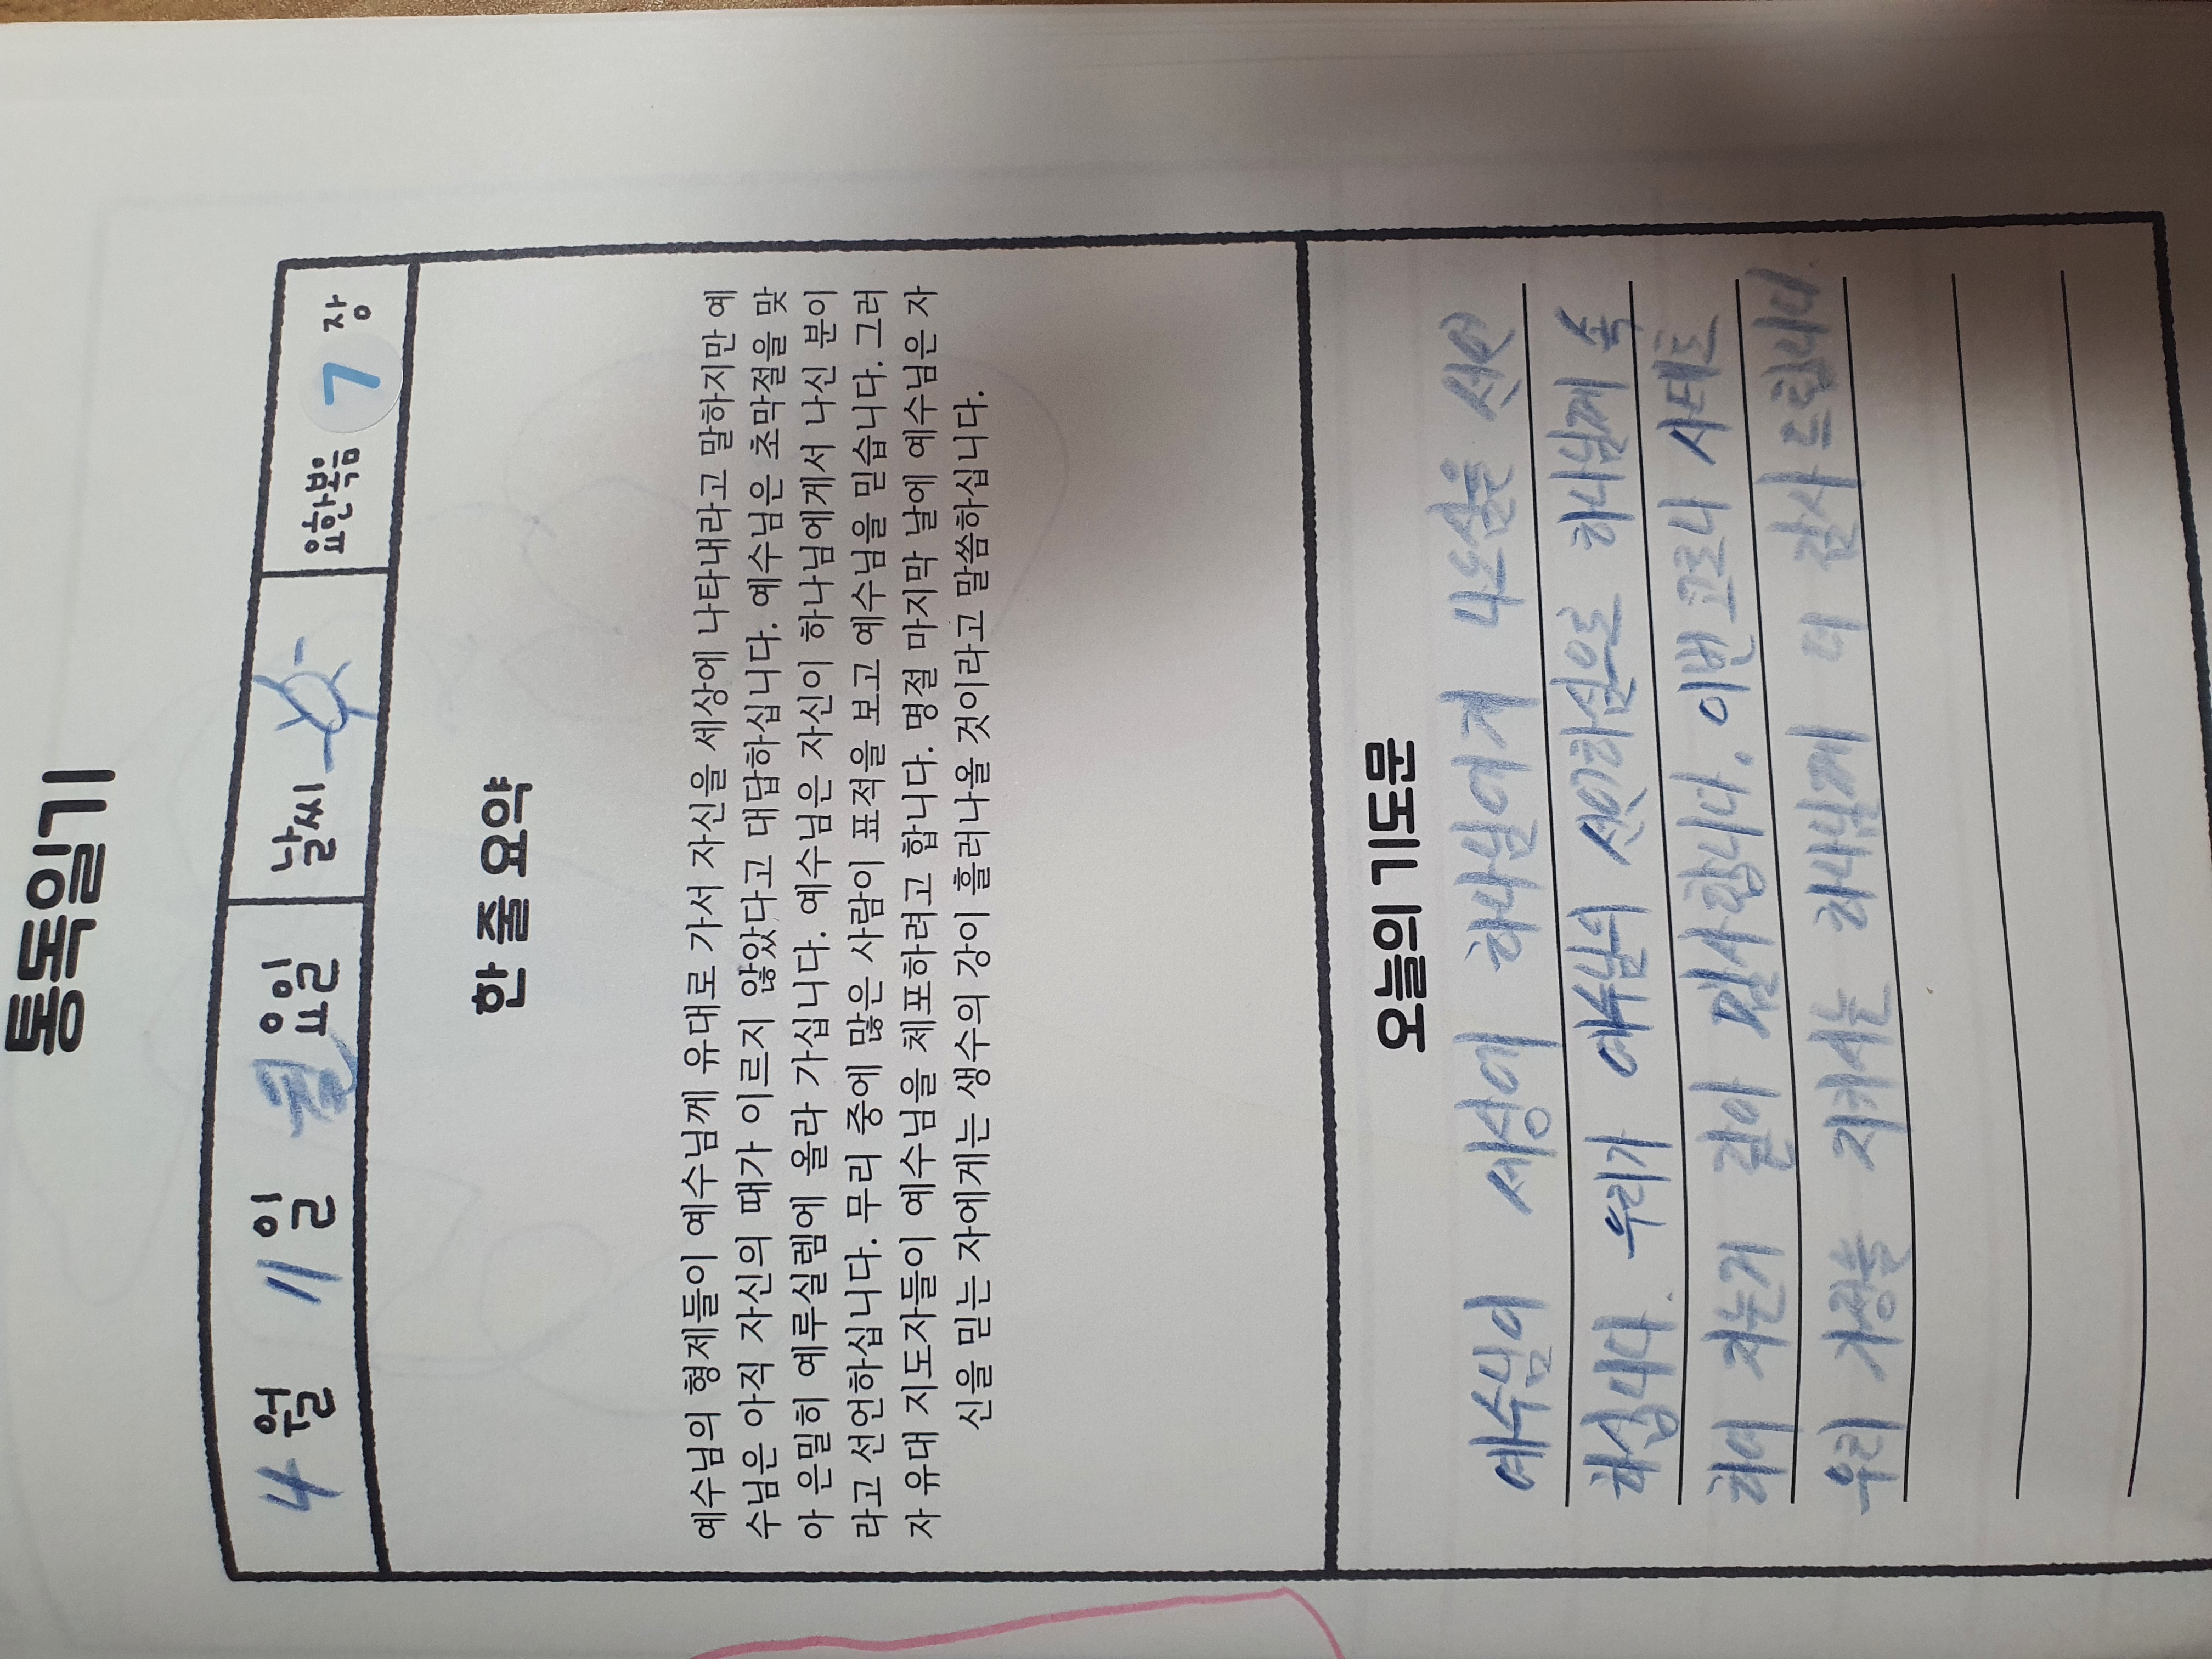 통독일기
4 월 11 일 요일 날씨 요한복음 7 장
한 줄 요약
예수님의 형제들이 예수님께 유대로 가서 자신을 세상에 나타내라고 말하지만 예
수님은 아직 자신의 때가 이르지 않았다고 대답하십니다. 예수님은 초막절을 맞
아 은밀히 예루살렘에 올라 가십니다. 예수님은 자신이 하나님에게서 나신 분이
라고 선언하십니다. 무리 중에 많은 사람이 표적을 보고 예수님을 믿습니다. 그러
자 유대 지도자들이 예수님을 체포하려고 합니다. 명절 마지막 날에 예수님은 자
신을 믿는 자에게는 생수의 강이 흘러나올 것이라고 말씀하십니다.
오늘의 기도문
예수님이 세상에 하나님에게 나오심을 선언
하십니다. 우리가 예수님의 선언하심으로 하나님께 속
하여 지는거 같아 감사합니다. 이번 코로나 사태로
우리 가정을 지키시는 하나님께 더 감사 드립니다